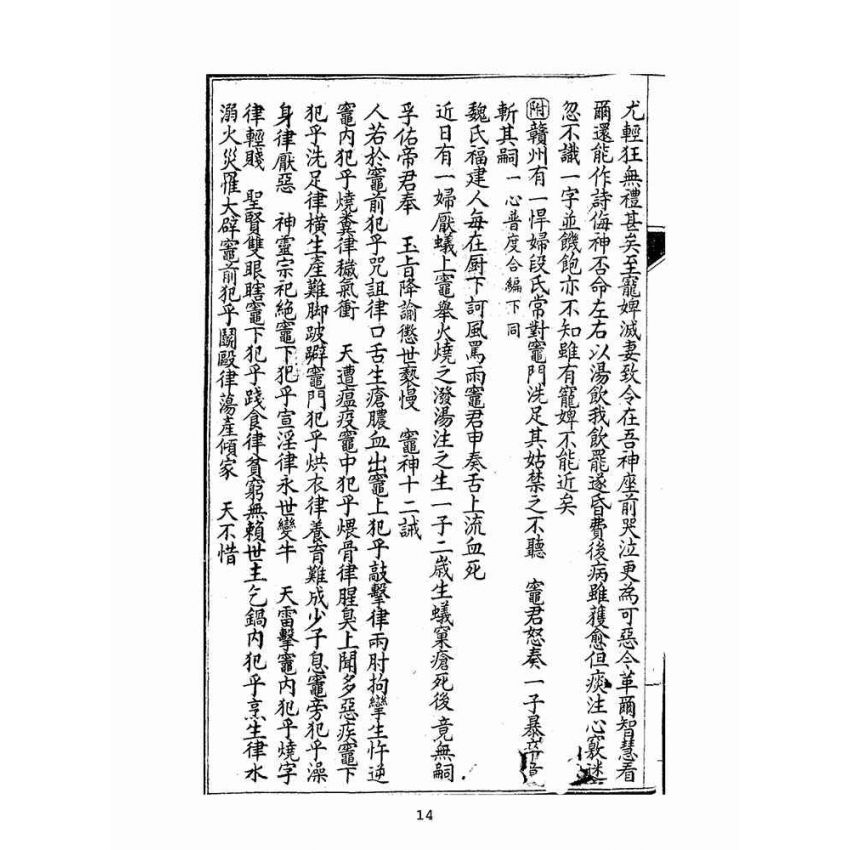 尤輕狂無禮甚矣至寵婢滅妻致令在吾神座前哭泣更為可惡今革爾智慧看
爾還能作詩侮神否命左右以湯飲我飲罷遂昏費後病雖獲愈但痰注心竅迷
忽不識一字並饑飽亦不知雖有寵婢不能近矣
附贛州有一悍婦段氏常對竈門洗足其姑禁之不聽　竈君怒奏一子暴
斬其嗣一心普度合編下同
魏氏福建人每在厨下訶風罵雨竈君申奏舌上流血死
近日有一婦厭蟻上竈舉火燒之潑湯注之生一子二歲生蟻窠瘡死後竟無嗣
孚佑帝君奉　玉旨降諭懲世褻慢　竈神十二誡
人若於竈前犯乎咒詛律口舌生瘡膿血出竈上犯乎敲擊律兩肘拘攣生忤逆
竈內犯乎燒糞律穢氣衝　天遭瘟疫竈中犯乎煨骨律腥臭上聞多惡疾竈下
犯乎洗足律橫生產難脚跛躃竈門犯乎烘衣律養育難成少子息竈旁犯乎澡
身律厭惡　神靈宗祀絕竈下犯乎宣淫律永世變牛　天雷擊竈內犯乎燒字
律輕賤　聖賢雙眼瞎竈下犯乎踐食律貧窮無賴世主乞鍋內犯乎烹生律水
溺火災罹大辟竈前犯乎鬬毆律蕩產傾家　天不惜
14